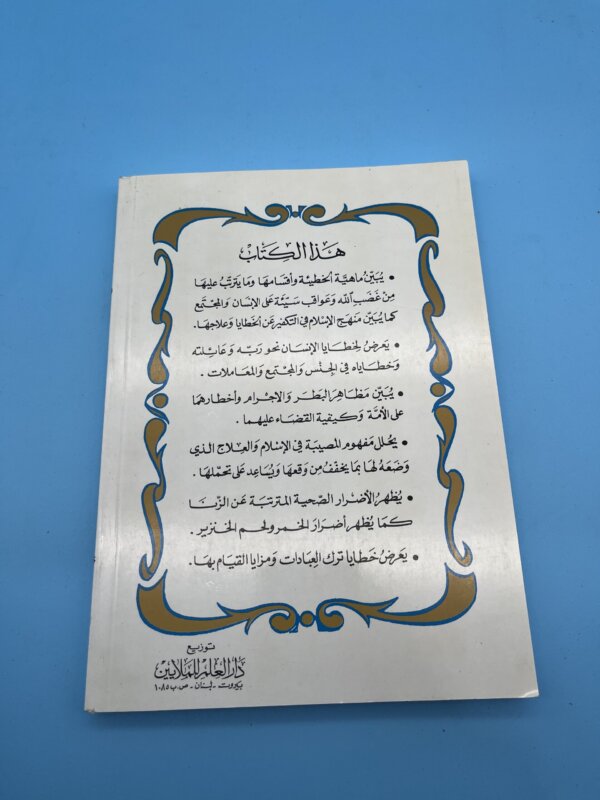 هَذا الكِتَابْ
• يُبَيّن مَاهيَّة الخطيئة وأقسَامهَا وَمَا يترتَّبُ عليهَا
مِنْ غَضَب الله وَعَواقب سَيّئة عَلى الإنسَان وَالمجْتَمَع
كمَا يُبَيّن مَنهَج الإسْلام في التكفير عَن الخطَايا وَعلاجهَا.
• يَعرَضُ لخطايَا الإنسَان نحوَ رَبّه وَعَائلته
وَخطايَاه في الجنْس وَالمجْتمَع وَالمعَاملات.
• يُبَيّن مَظَاهِرَ البَطَر وَالاجرَام وأخطارهمَا
على الأمَّة وَكيفيّة القضَاء عليهما.
• يحُلل مَفهوم المصيبَة في الإسْلام وَالعلاج الذي
وَضَعَهُ لهَا بمَا يخفّفُ مِن وَقعهَا وَيُسَاعِد عَلى تحمّلهَا.
• يُظهرُ الأضرَار الصّحية المترتبَة عَن الزّنَا
كمَا يُظهر أضرَارَ الخمر ولحم الخنزير.
• يعَرضُ خَطايا ترك العِبَادات وَمزايا القيَام بهَا.
توزيع
دَارُ العِلم للمَلايين
بَيروت - لبنان - ص.ب ١٠٨٥